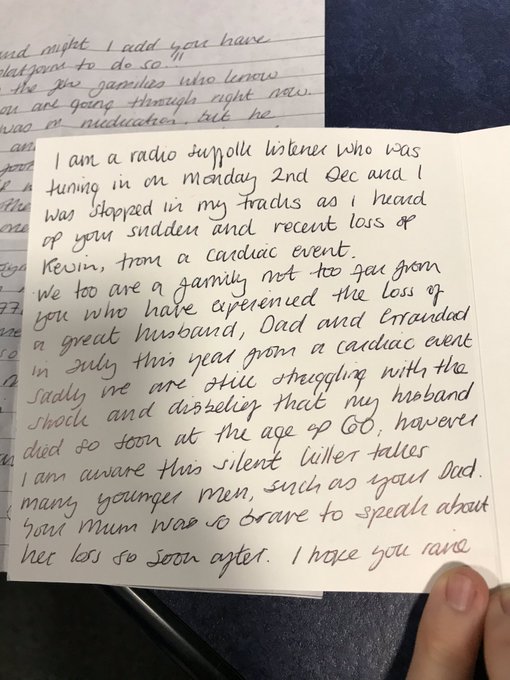 and might I add you have
platform to do so "
the few families who know
you are going through right now.
was on medication, but he
I am a radio suffolk listener who was
tuning in on Monday 2nd Dec and I
was stopped in my tracks as i heard
of your sudden and recent loss of
Kevin, from a cardiac event.
We too are a family not too far from
you who have experienced the loss of
a great husband, Dad and Grandad
in July this year from a cardiac event
Sadly we are still struggling with the
shock and disbelief that my husband
died so soon at the age of 60, however
I am aware this silent killer takes
many younger men, such as your Dad.
Your Mum was so brave to speak about
her loss so soon after. I hope you raise